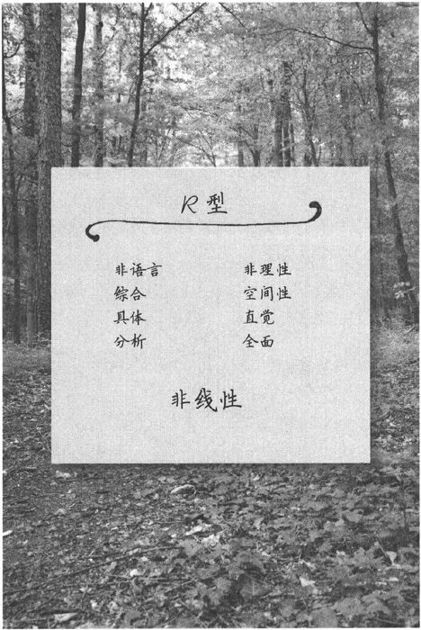 R型
非语言 非理性
综合 空间性
具体 直觉
分析 全面
非线性